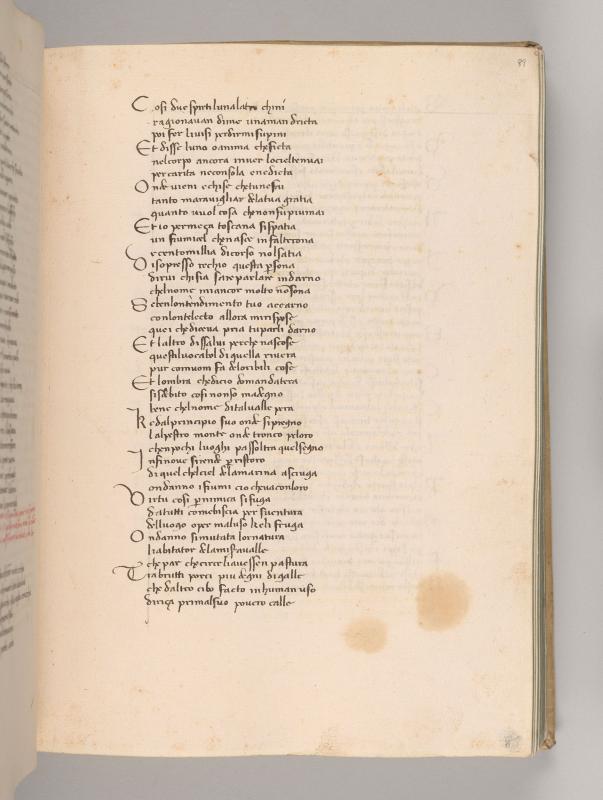 89
Cosi due spirti luna latro chini
ragionauan dime unaman dricta
poi fer liuisi perdirmi supini
Et disse luno oanima chesicta
nelcorpo ancora inuer locieltenuai
percarita neconsola enedicta
Onde uieni echise chetunefai
tanto marauigliar delatua gratia
quanto uuol cosa chenonfupiumai
Et io permeza toscana sispatia
un fiumicel chenasce in falterona
e centomillia dicorso nolsatia
Disopresso rechio questa psona
dirui chisia saria parlare indarno
chelnome miancor molto nōsona
Sebenlontendimento tuo accarno
conlontelecto allora mirispose
quei chediceua pria tuparli darno
Et laltro dissalui perche nascose
questiluocabol diquella riuera
pur comuom fa deloribili cose
Et lombra chedicio domandatera
sisdebito cosi nonso madegno
bene chelnome ditalualle pera
Kedalprincipio suo onde sipregno
lalpestro monte onde tronco peloro
chenpochi luoghi passoltra quelsegno
Infinoue sirende pristoro
diquel chelciel delamarina asciuga
ondanno ifiumi cio cheuaconloro
Virtu cosi pnimica sifuga
datutti comebiscia per suentura
delluogo oper maluso keli fruga
Ondanno simutata lornatura
liabitator delamisaualle
che par checirce liauessen pastura
Tra brutti porci piu degni digalle
che daltro cibo facto inhuman uso
diriça primalsuo pouero calle